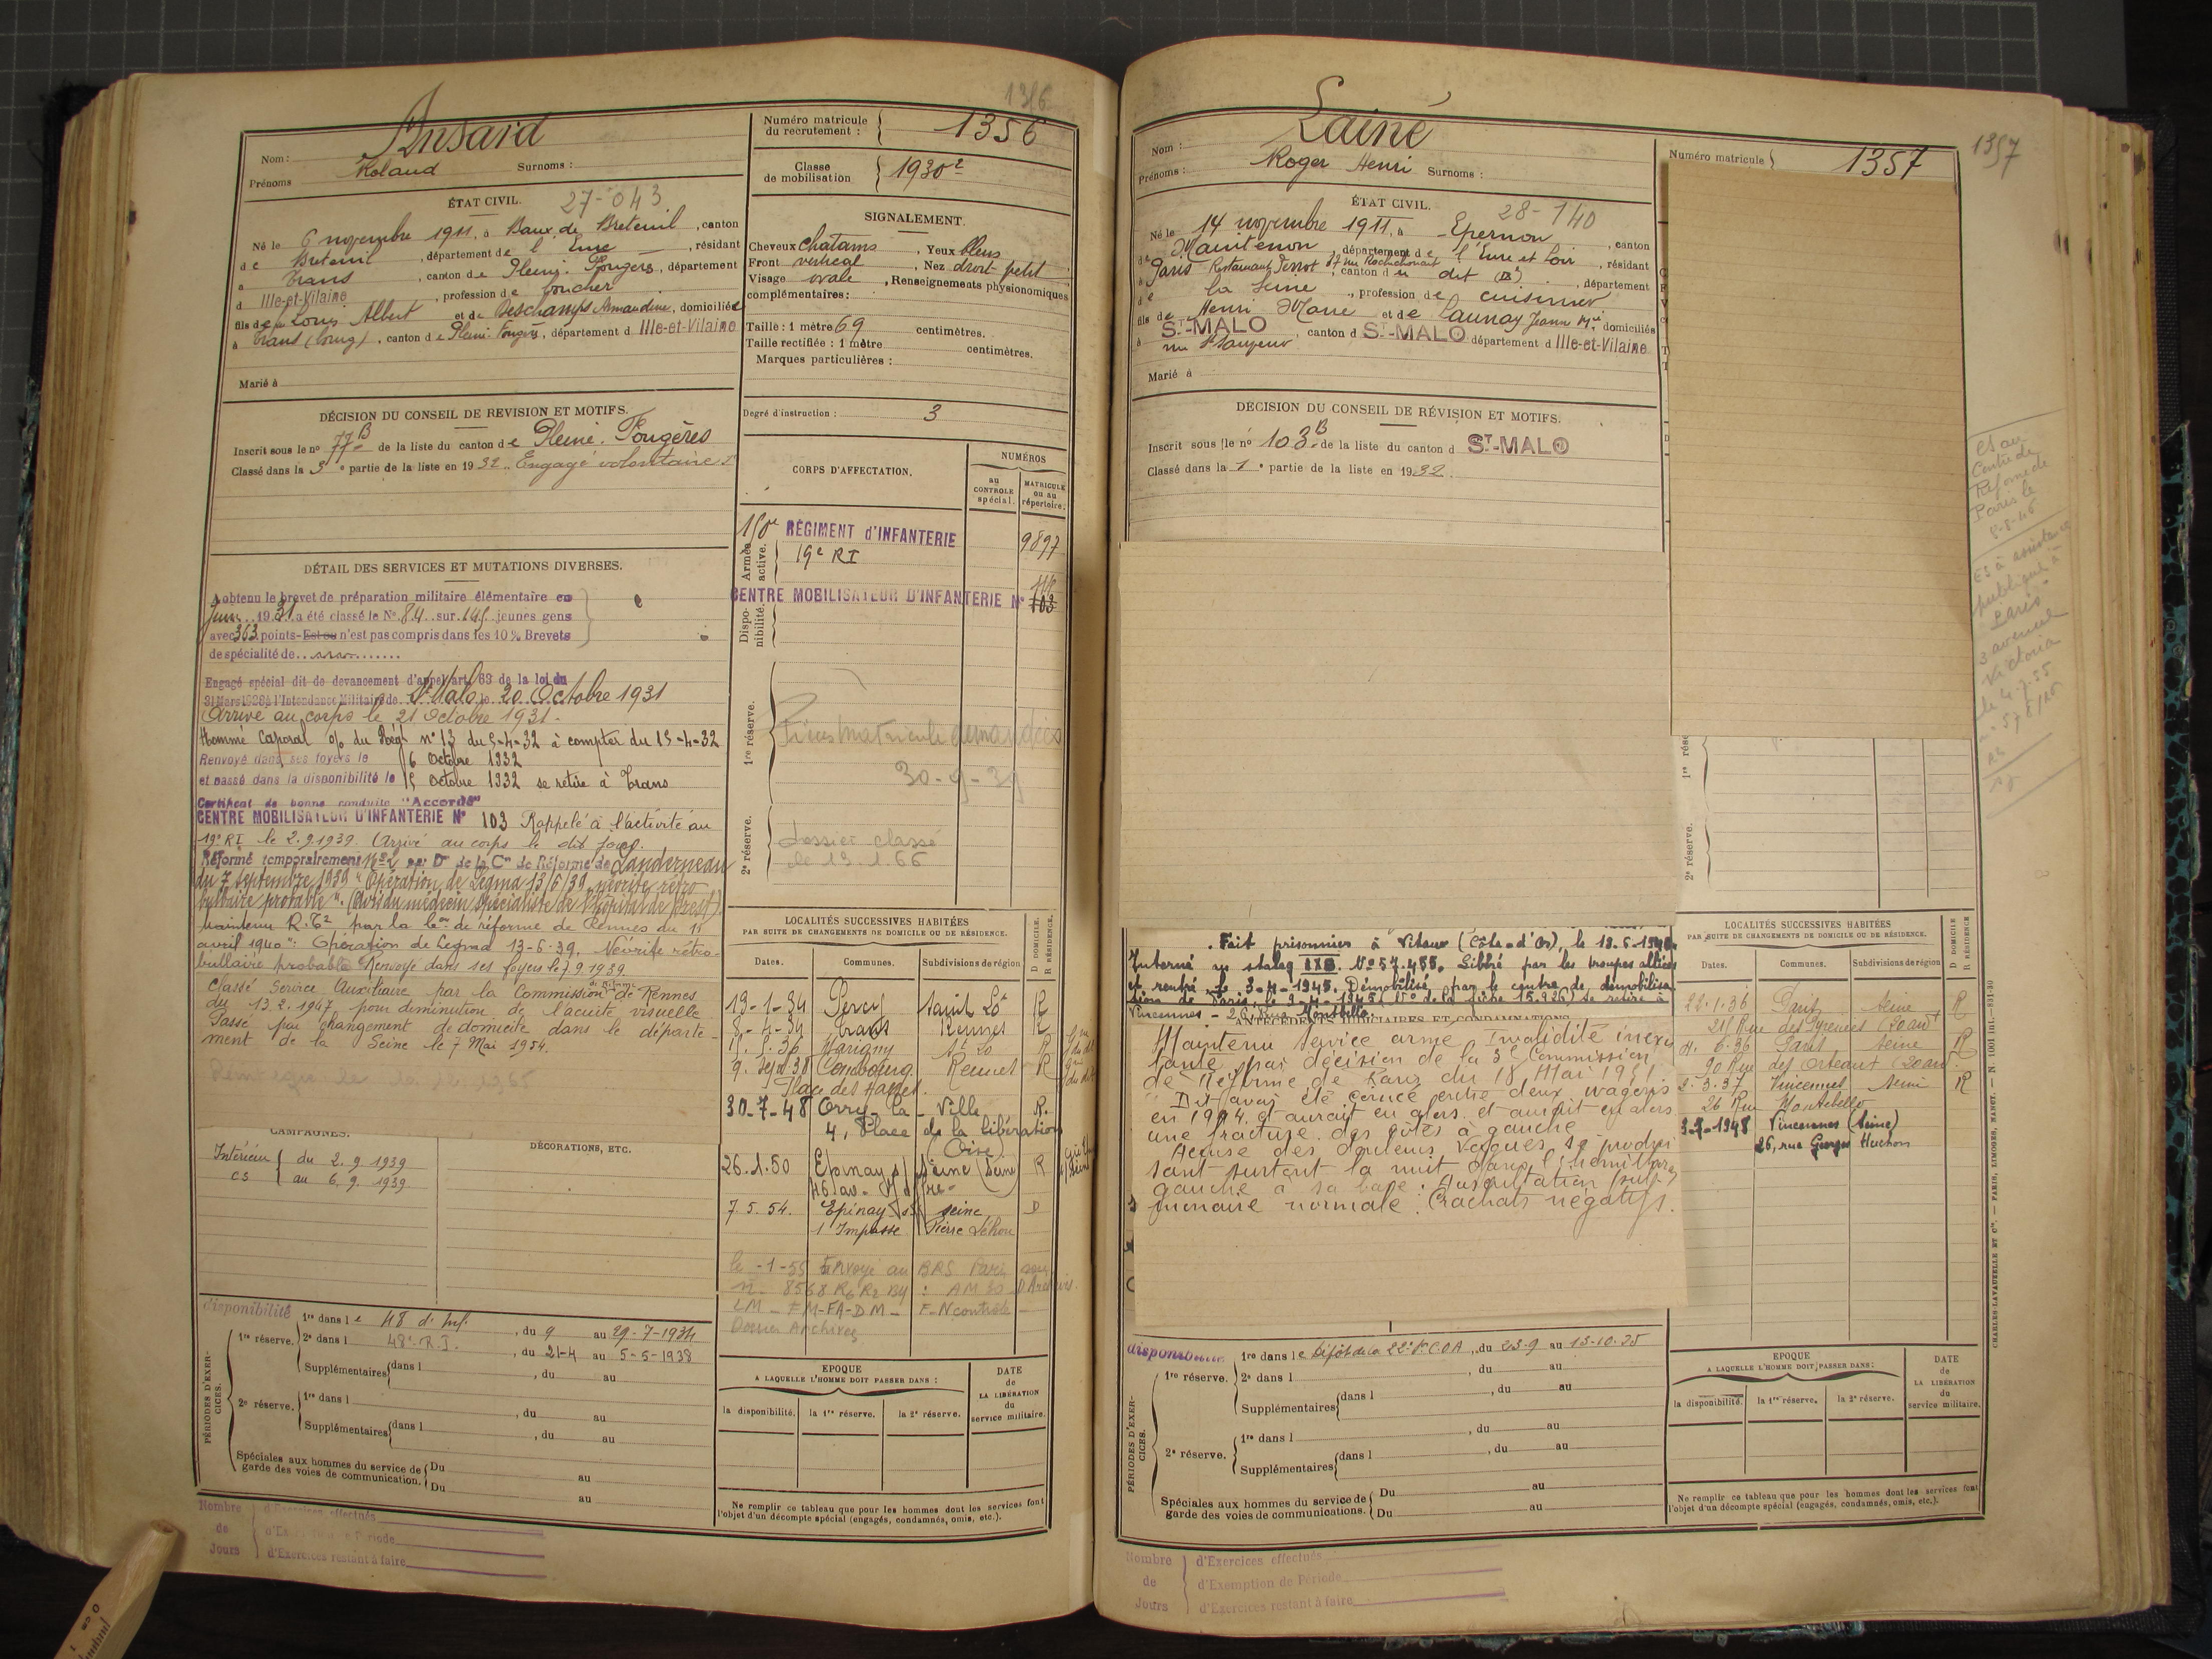 1356
Nom : Ansard
Prénoms Roland Surnoms :
Numéro matricule
du recrutement : 1356
Classe
de mobilisation 1930²
ÉTAT CIVIL. 27-043
Né le 6 novembre 1911, à Baux de Breteuil, canton
de Breteuil, département de l'Eure, résidant
à Trans, canton de Pleine-Fougères, département
d Ille-et-Vilaine, profession de boucher
fils de feu Louis Albert et de Deschamps Armandine, domiciliée
à Trans (bourg), canton de Pleine-Fougères, département d Ille-et-Vilaine
Marié à
SIGNALEMENT.
Cheveux chatains, Yeux bleus
Front vertical, Nez droit petit
Visage ovale, Renseignements physionomiques
complémentaires :
Taille : 1 mètre 69 centimètres.
Taille rectifiée : 1 mètre centimètres.
Marques particulières :
Degré d'instruction : 3
DÉCISION DU CONSEIL DE REVISION ET MOTIFS.
Inscrit sous le no 77 B de la liste du canton de Pleine-Fougères
Classé dans la 3e partie de la liste en 1932. Engagé volontaire
DÉTAIL DES SERVICES ET MUTATIONS DIVERSES.
A obtenu le brevet de préparation militaire élémentaire en
Juin 1931 a été classé le No 84 sur 145 jeunes gens
avec 363 points - Est ou n'est pas compris dans les 10 % Brevets
de spécialité de
Engagé spécial dit de devancement d'appel art. 63 de la loi du
31 Mars 1928 à l'Intendance Militaire de St Malo le 20 Octobre 1931
Arrivé au corps le 21 Octobre 1931.
Nommé Caporal o/ du Régt n° 13 du 5-4-32 à compter du 15-4-32
Renvoyé dans ses foyers le 16 Octobre 1932
et passé dans la disponibilité le 15 Octobre 1932 se retire à Trans
Certificat de bonne conduite "Accordé"
CENTRE MOBILISATEUR D'INFANTERIE N° 103 Rappelé à l'activité au
19e RI le 2.9.1939. Arrivé au corps le dit jour.
Réformé temporairement N°2 par Don de la Con de Réforme de Landerneau
du 7 septembre 1939 "Opération de Legma 13/6/39, névrite rétro
bulbaire probable". (Avis du médecin spécialiste de l'Hôpital de Brest).
Maintenu R.T² par la Con de réforme de Rennes du 11
avril 1940 ": Opération de Legma 13-6-39. Névrite rétro-
bulbaire probable Renvoyé dans ses foyers le 7.9.1939.
Classé Service Auxiliaire par la Commission de Réforme de Rennes
du 13.2.1947 pour diminution de l'acuité visuelle
Passé par changement de domicile dans le départe-
ment de la Seine le 7 Mai 1954.
CORPS D'AFFECTATION.
NUMÉROS
au
CONTROLE
spécial.
MATRICULE
ou au
répertoire.
Armée
active.
150e RÉGIMENT d'INFANTERIE 9897
19e RI
Dispo-
nibilité.
CENTRE MOBILISATEUR D'INFANTERIE N° 103
1re réserve.
Pièces matricule demandées
30-9-39
2e réserve.
dossier classé
le 13.1.66
CAMPAGNES.
Intérieur du 2.9.1939
CS au 6.9.1939
DÉCORATIONS, ETC.
LOCALITÉS SUCCESSIVES HABITÉES
PAR SUITE DE CHANGEMENTS DE DOMICILE OU DE RÉSIDENCE.
Dates. Communes. Subdivisions de région
D DOMICILE.
R RÉSIDENCE.
19-1-34 Percy Saint Lô R
8-4-34 Trans Rennes R
11.5.36 Marigny St Lo R
9. Sept 38 Combourg Rennes R
Place des Halles.
30-7-48 Orry-la-Ville R.
4, Place de la libération
Oise
26.1.50 Epinay s/ Seine (Seine) R
7.5.54. Epinay s/ seine D
1 Impasse Pierre Léhon
le -1-55 Envoyé au BRS Paris
Dossier Archives
disponibilité
PÉRIODES D'EXER-
CICES.
1re réserve. 1re dans le 48 d'Inf. , du 9 au 29-7-1934
2e dans l 48e R.I. , du 21-4 au 5-5-1938
Supplémentaires dans l , du au
2e réserve. 1re dans l
, du au
Supplémentaires dans l , du au
Spéciales aux hommes du service de
garde des voies de communication. Du au
Du au
EPOQUE
A LAQUELLE L'HOMME DOIT PASSER DANS :
la disponibilité. la 1re réserve. la 2e réserve.
DATE
de
LA LIBÉRATION
du
service militaire.
Ne remplir ce tableau que pour les hommes dont les services font
l'objet d'un décompte spécial (engagés, condamnés, omis, etc.).
Nombre
de
Jours
d'Exercices effectués
d'Exemption de Période
d'Exercices restant à faire
1357
Nom : Lainé
Prénoms : Roger Henri Surnoms :
Numéro matricule 1357
ÉTAT CIVIL. 28-140
Né le 14 novembre 1911, à Epernon, canton
de Maintenon, département de l'Eure et Loir, résidant
à Paris Restaurant Perrot 87 rue Rochechouart, canton du dit (B), département
de la Seine, profession de cuisinier
fils de Henri Marie et de Launay Jeanne Mie domiciliés
à ST-MALO canton d ST-MALO département d Ille-et-Vilaine
Marié à
DÉCISION DU CONSEIL DE RÉVISION ET MOTIFS.
Inscrit sous le no 103 B de la liste du canton d ST-MALO
Classé dans la 1e partie de la liste en 1932.
Fait prisonnier à Vitaux (Côte-d'Or), le 18.6.1940
Interné au stalag XXB. N° 57.455. Libéré par les troupes alliées
et rentré le 3-4-1945. Démobilisé par le centre de démobilisa
tion de Paris, le 9-4-1945 (N° de la fiche 15.926) se retire à
Vincennes - 26, Rue Montebello.
ANTÉCÉDENTS JUDICIAIRES ET CONDAMNATIONS
Maintenu service armé Invalidité inexis
tante par décision de la 3e Commission
de Réforme de Paris du 18 Mai 1951
"Dit avoir été coincé entre deux wagons
en 1944 et aurait eu alors et aurait eu alors
une fracture des côtes à gauche
Accuse des douleurs vagues se produi
sant surtout la nuit dans l'hémithorax
gauche à sa base : Auscultation pul-
monaire normale. Crachats négatifs.
1re réserve.
2e réserve.
LOCALITÉS SUCCESSIVES HABITÉES
PAR SUITE DE CHANGEMENTS DE DOMICILE OU DE RÉSIDENCE.
Dates. Communes. Subdivisions de région
D DOMICILE
R RÉSIDENCE
22.1.36 Paris Seine R
211 Rue des Pyrénées (20 art
4. 6.36 Paris Seine R
90 Rue des Orteaux (20 arr.
2.3.37 Vincennes Seine R
26 Rue Montebello
3-7-1948 Vincennes (Seine)
26, rue Georges Huchon
es au
Centre de
Réforme de
Paris le
8-8-46
ES à assistance
publique à
Paris
3 avenue
Victoria
le 4.7.55
disponibilité
PÉRIODES D'EXER-
CICES.
1re réserve. 1re dans le Dépôt de la 22e Son C.O.A , du 23-9 au 13-10-35
2e dans l , du au
Supplémentaires dans l , du au
2e réserve. 1re dans l , du au
Supplémentaires dans l , du au
Spéciales aux hommes du service de
garde des voies de communications. Du au
Du au
EPOQUE
A LAQUELLE L'HOMME DOIT PASSER DANS :
la disponibilité. la 1re réserve. la 2e réserve.
DATE
de
LA LIBÉRATION
du
service militaire.
Ne remplir ce tableau que pour les hommes dont les services font
l'objet d'un décompte spécial (engagés, condamnés, omis, etc.).
CHARLES-LAVAUZELLE ET Cie. — PARIS, LIMOGES, NANCY. — N. 1001 int.—831-30
Nombre
de
Jours
d'Exercices effectués
d'Exemption de Période
d'Exercices restant à faire